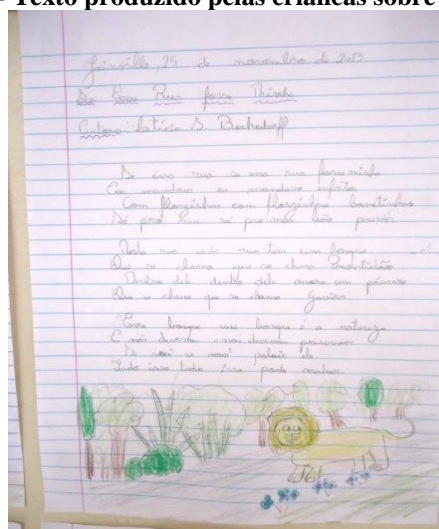 Texto produzido pelas crianças sobre
Joinville, 25 de novembro de 2013
Se Essa Rua fosse Minha
Autora: Letícia S.
Se essa rua se essa rua fosse minha
Eu mandava eu mandava enfeitar
Com florzinhas com florzinhas bonitinhas
Só pra meu só pra meu passar
Nesta rua nesta rua tem um bosque
Que se chama que se chama
Dentro dele dentro dele mora um pássaro
Que se chama que se chama
Esse bosque esse bosque é a natureza
E nós devemos e nós devemos preservar
Se você se você poluir ele
Tudo isso tudo isso pode acabar.